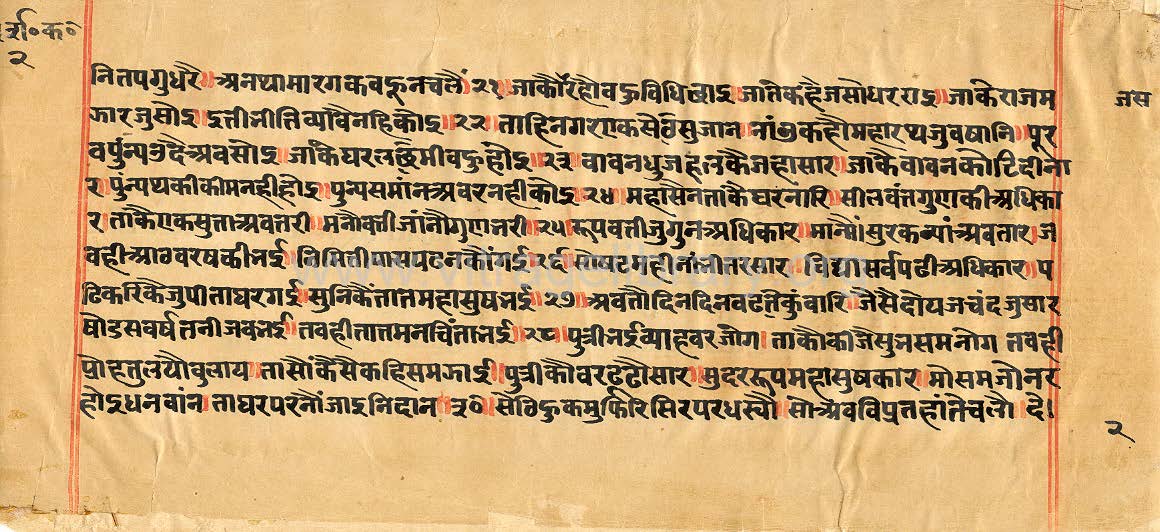 र्द्रा॰क॰
२
नितपगुधरै॥ अनथामारगकवहूनचलैं २१ जाकौंरहौवहुविधिषाइ जातिकहैजसोधरराइ जाकेराजम
जस
ऊारजुसोइ इत्तीभीत्तिव्यापैनहिकोइ २२ ताहिनगरएकसेठसुजान नांउकहौमहारथजुवषानि पूर
वपुंन्यउदैअवसोइ जाकैघरलछिमीवहुहोइ २३ वावनधुजहलकैजहासार जाकैवावनकोटिदीना
र पुंन्यपथकीकीमनहीहोइ पुन्यसमांनअवरनहीकोइ २४ महासैनताकैघरनारि सीलवंत्तगुणकीअधिका
र ताकैएकसुताअवत्तरी मनौक्तीजांनौगुणभरी २५ रूपवत्तीजुगुनअधिकार मान्यौंसुरकन्यांअवतार ज
वहीआठवरषकीभई निमित्तीपासपढनकौंगई २६ सोषटमहीनांभीतरसार विद्यासर्वपढीअधिकार प
ढिकरिकैजुपीताघरगई सुनिकैंतातमहासुषभई २७ अवतौदिनदिनवढतकुंवारि जैसैदोयजचंदजुसार
षोडसवर्षतनीजवभई तवहीतातमनचिंताभई २८ पुत्रीभईव्याहवरजोग ताकौकीजैसुभसमनोग तवही
प्रोहतुलयौवुलाय तासौंकैसैकहिसमऊाई पुत्रीकौवरढूढौसार सुदररूपमहासुषकार मौसमजौनर
होइधनवांन ताघरपरनौंजाइनिदान ३० सेठिहुकमुफिरिसिरपरधस्यौ सोअवविप्रतहांतैचलौ दे।
२